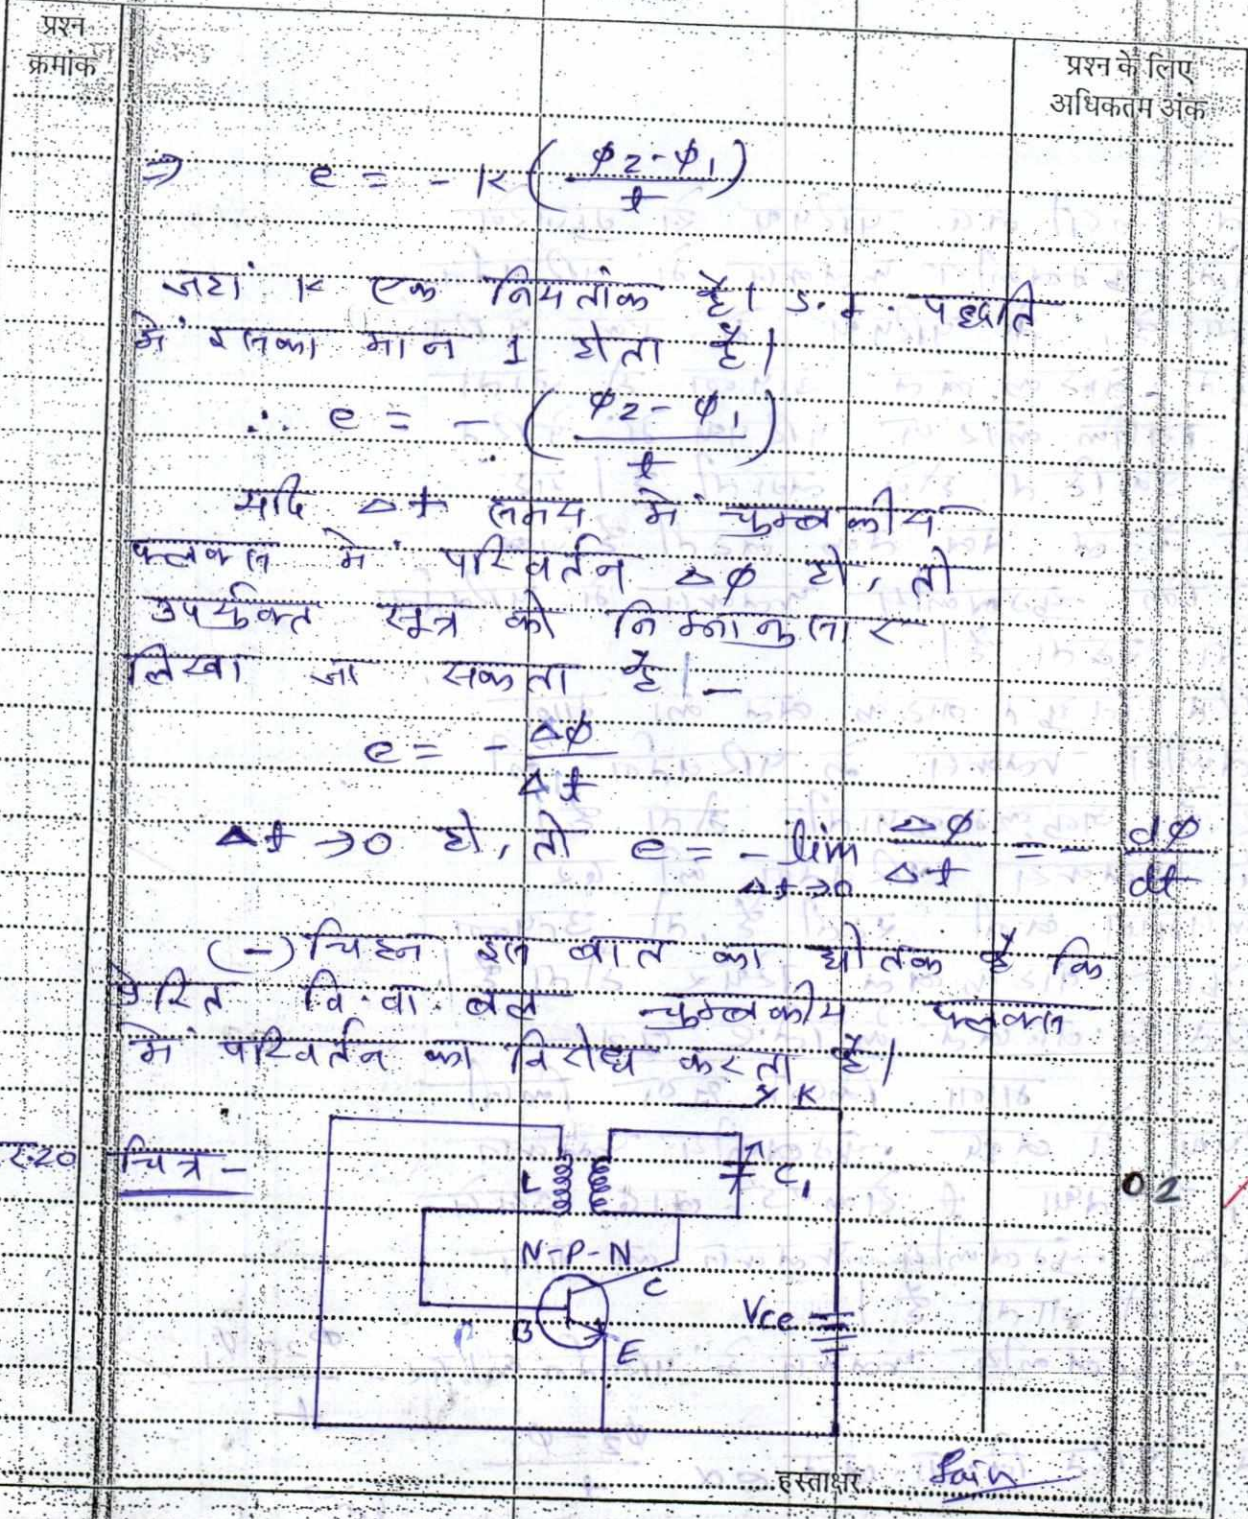 प्रश्न
क्रमांक
प्रश्न के लिए
अधिकतम अंक
⇒ e = - K (φ2 - φ1 / t)
जहां K एक नियतांक है। S.I. पद्धति
में इसका मान 1 होता है।
∴ e = - (φ2 - φ1 / t)
यदि Δt समय में चुम्बकीय
फ्लक्स में परिवर्तन Δφ हो, तो
उपर्युक्त सूत्र को निम्नानुसार
लिखा जा सकता है। —
e = - Δφ / Δt
Δt → 0 हो, तो e = - lim Δt→0 Δφ / Δt = - dφ / dt
(-) चिह्न इस बात का द्योतक है कि
प्रेरित वि. वा. बल चुम्बकीय फ्लक्स
में परिवर्तन का विरोध करता है।
K
20 चित्र -
L C1
02
N-P-N
C
B
Vce
E
हस्ताक्षर